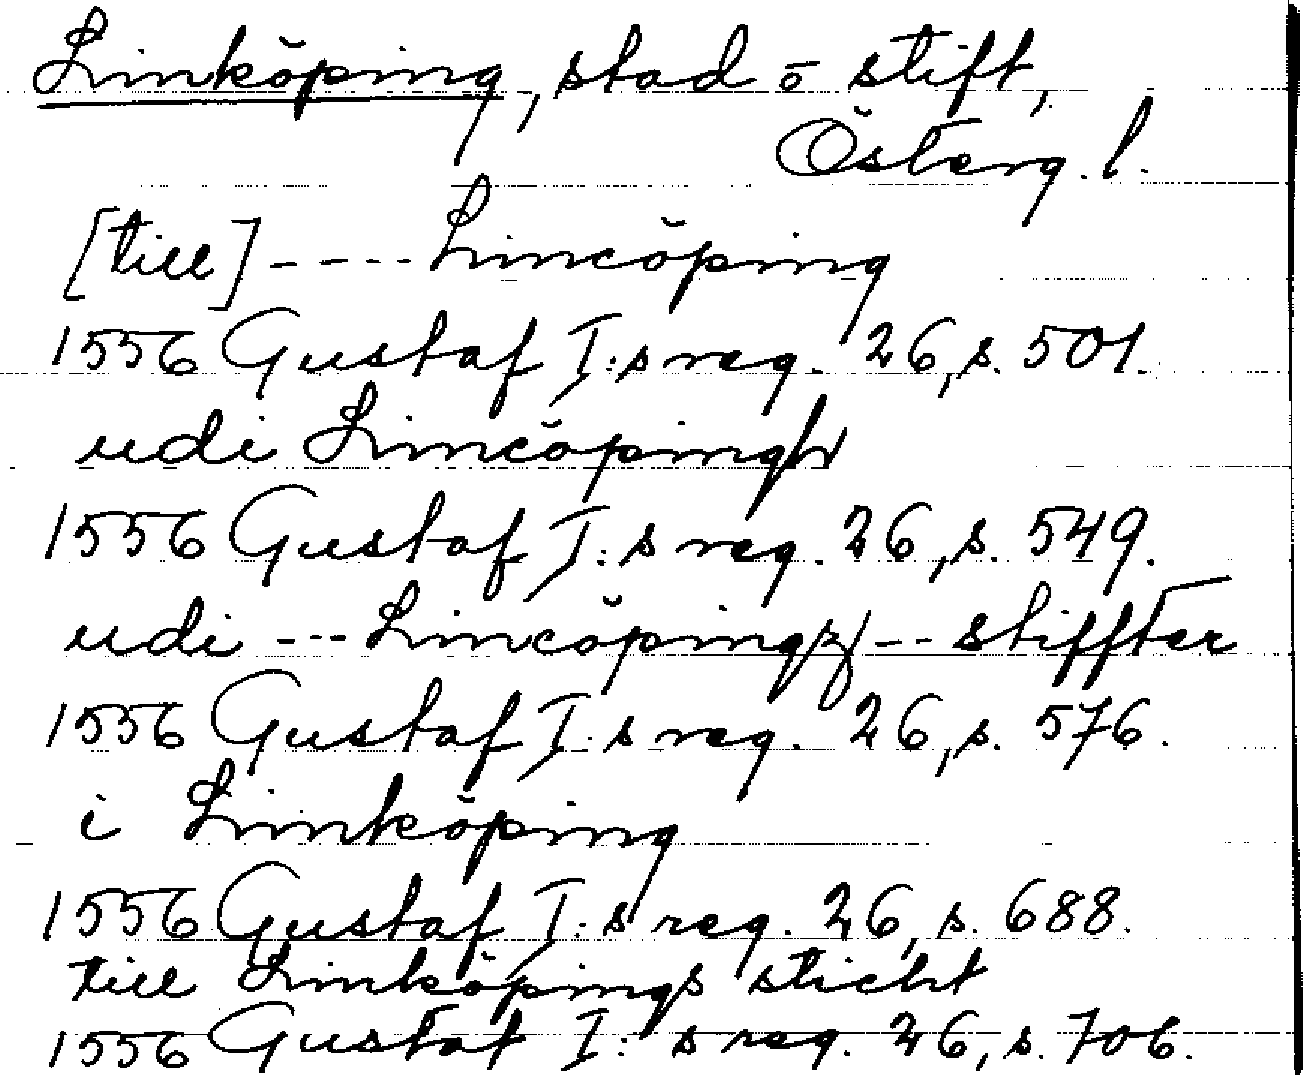 Linköping, stad o stift,
Österg. l.
[till] ---- Lincöping
1556 Gustaf I:s reg. 26, s. 501.
udi Lincöpingh
1556 Gustaf I:s reg. 26, s. 549.
udi --- Lincöpingz -- stiffter
1556 Gustaf I:s reg. 26, s. 576.
i Linnköping
1556 Gustaf I:s reg. 26, s. 688.
till Linnköpings sticht
1556 Gustaf I:s reg. 26, s. 706.